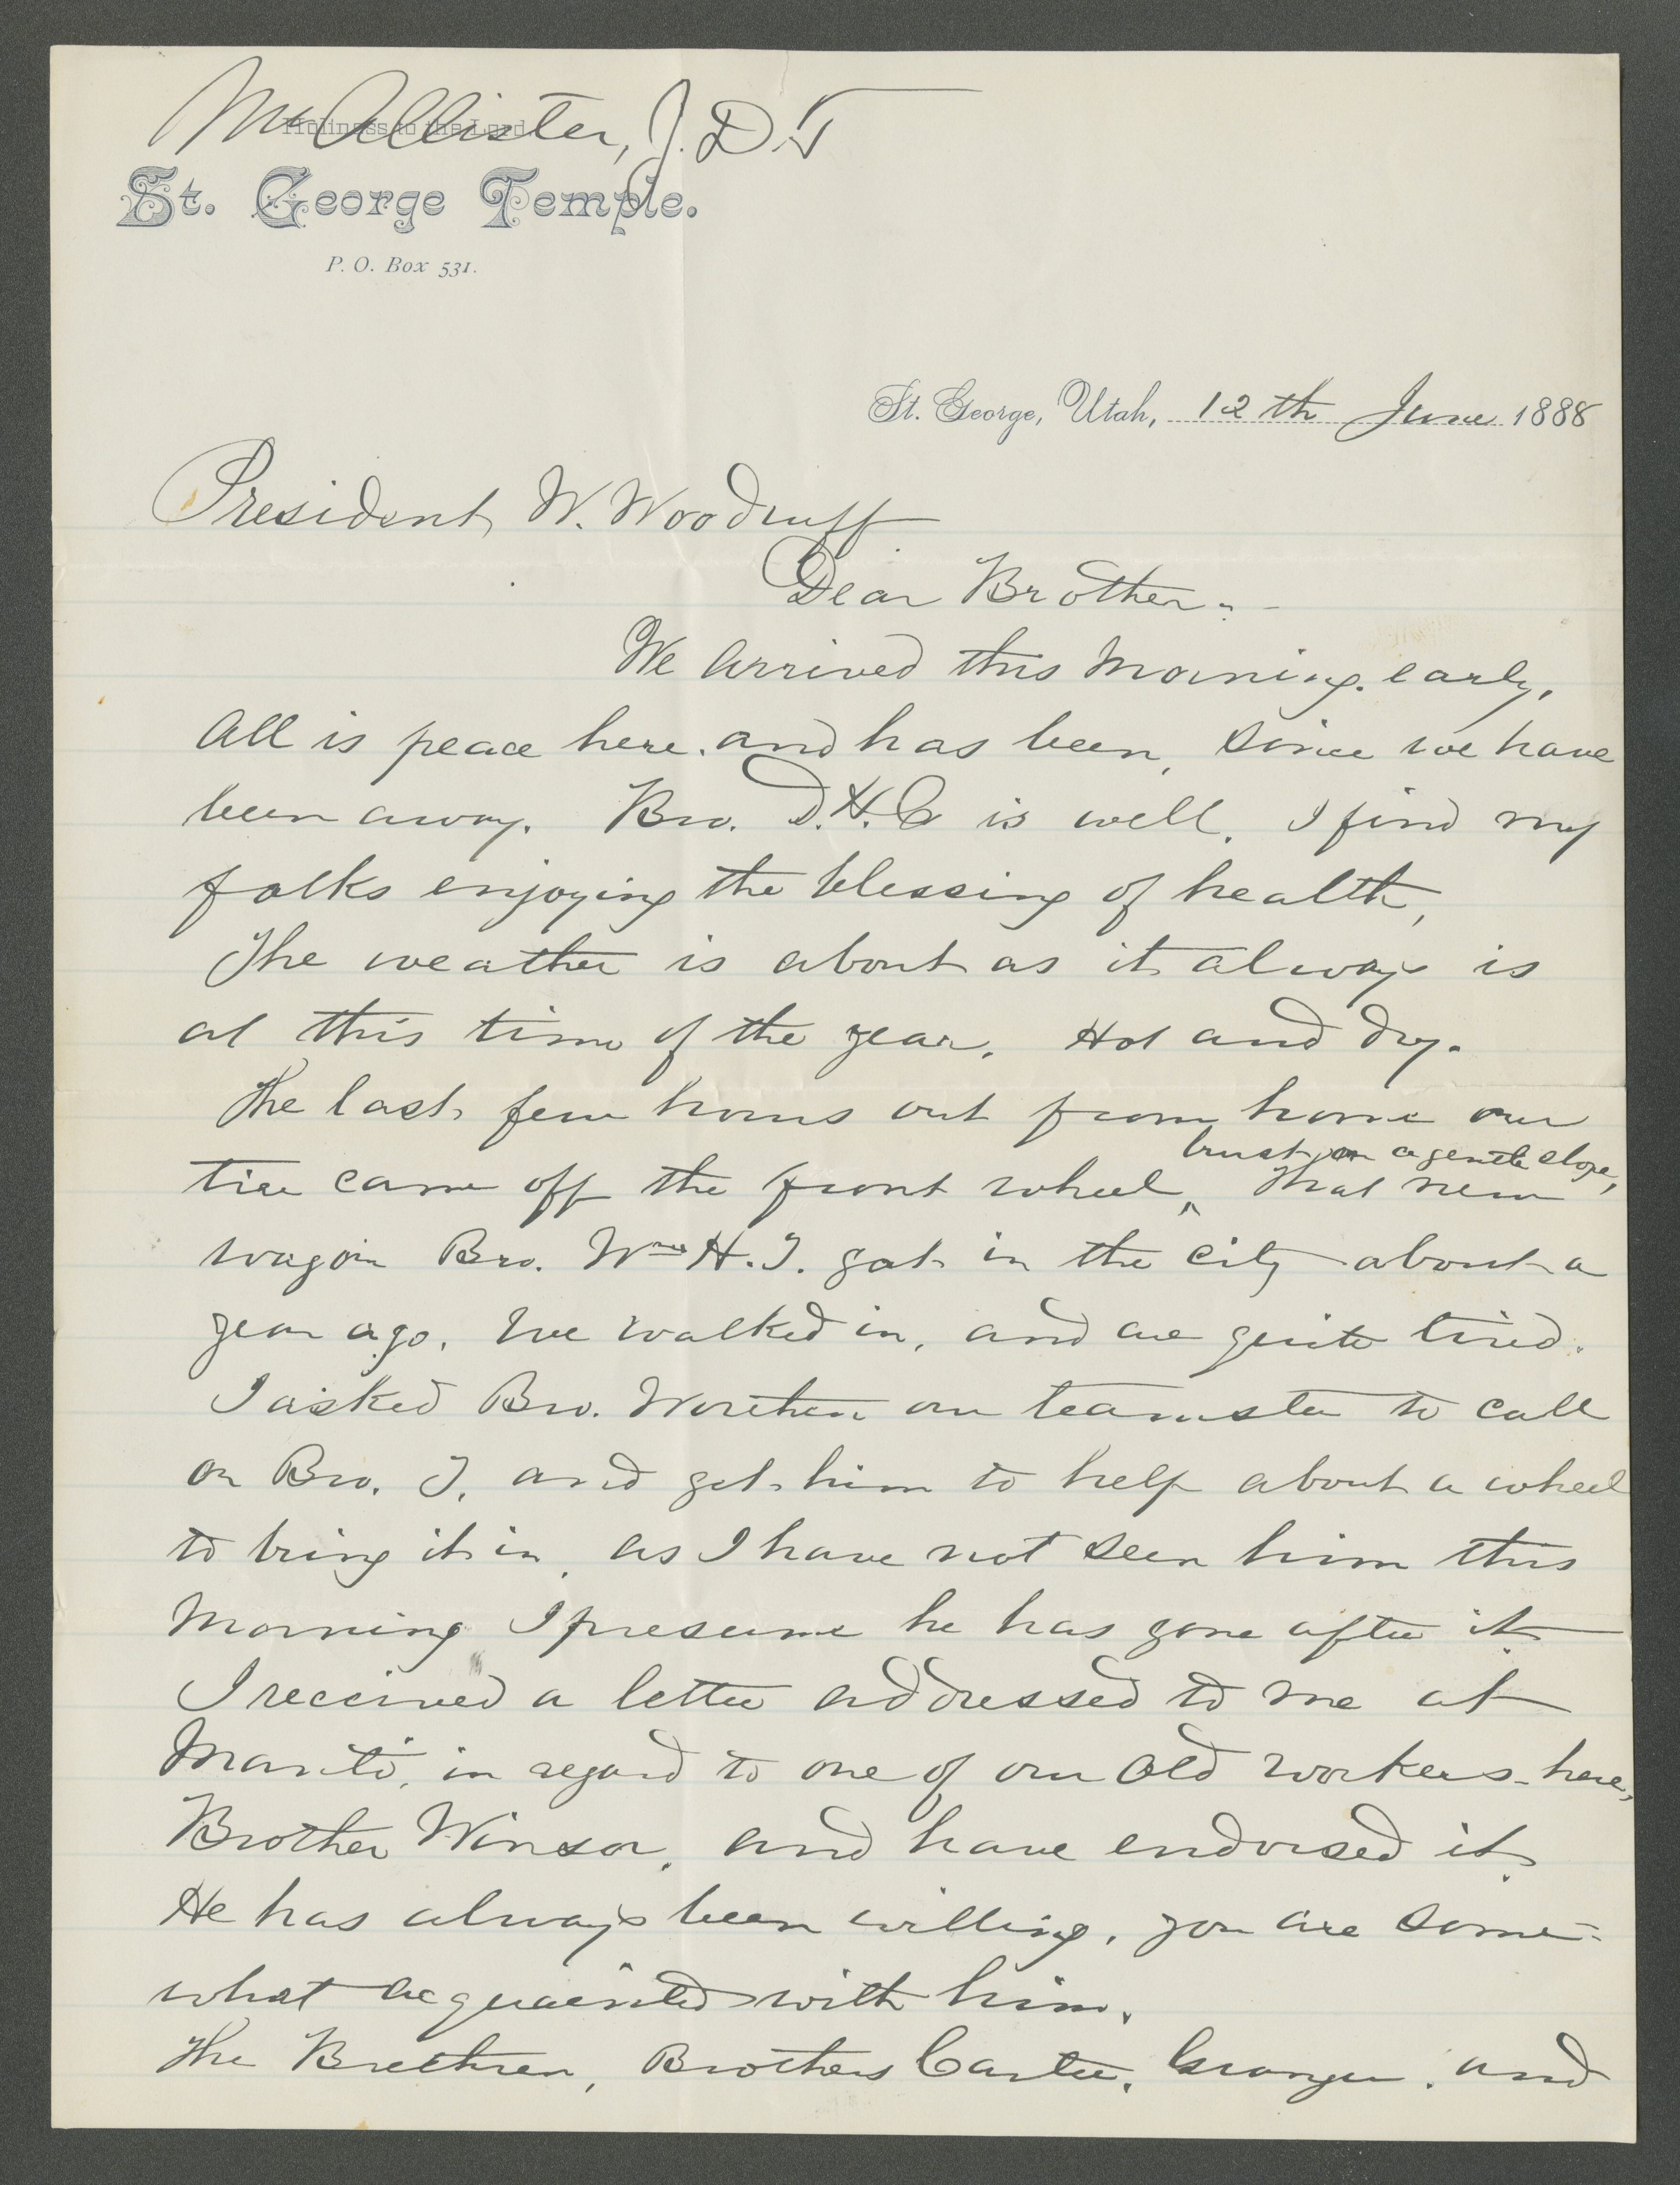 McAllister, J. D. T
Holiness to the Lord
St. George Temple.
P. O. Box 531.
St. George, Utah, 12th June 1888
President W. Woodruff
Dear Brother:-
We arrived this Morning early,
All is peace here. and has been, since we have
been away. Bro. D.H.C is well. I find my
folks enjoying the blessing of health,
The weather is about as it always is
at this time of the year. Hot and dry.
The last few hours out from home our
tire came off the front wheel, That new
burst on a gentle slope,
wagon Bro. Wm H. T. got in the city about a
year ago. We walked in, and are quite tired.
I asked Bro. Worthen our teamster to call
on Bro. T. and get him to help about a wheel
to bring it in, as I have not seen him this
Morning I presume he has gone after it.
I received a letter addressed to me at
Manti, in regard to one of our old workers here,
Brother Winsor, and have endorsed it.
He has always been willing, you are some-
what acquainted with him.
The Brethren, Brothers Carter, Granger, and